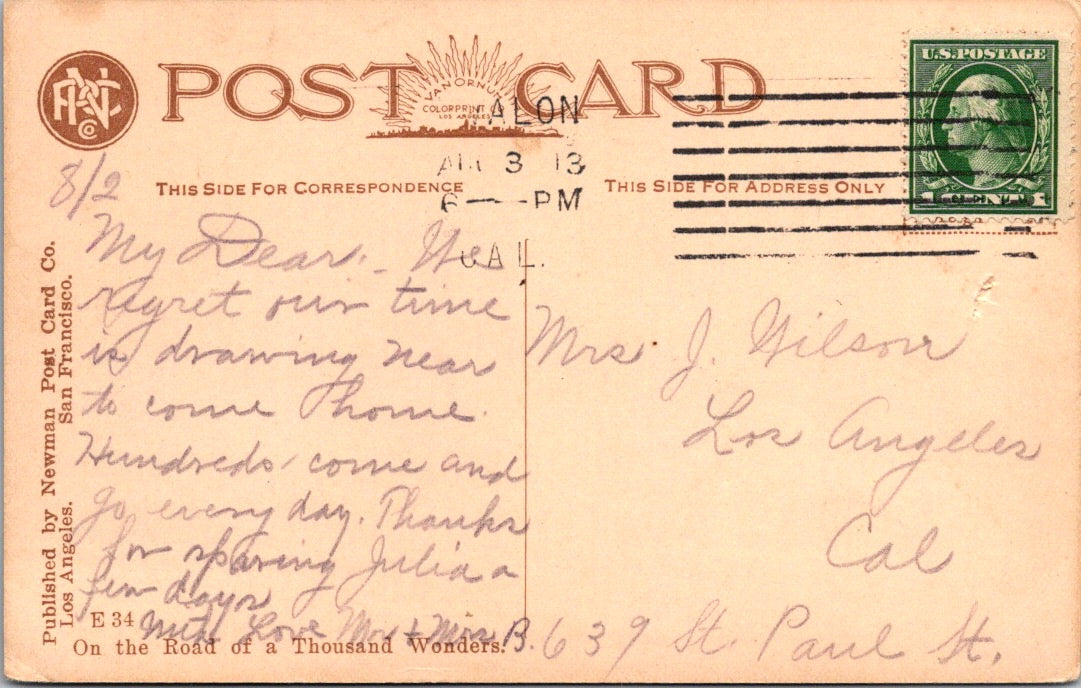 POST CARD
VAN ORNUM
COLORPRINT CO
LOS ANGELES
ANC
CO
U.S. POSTAGE
1 CENT 1
ALON
AUG 3 13
6 — PM
CAL.
THIS SIDE FOR CORRESPONDENCE
THIS SIDE FOR ADDRESS ONLY
8/2
My Dear. - We
regret our time
is drawing near
to come home.
Hundreds come and
go every day. Thanks
for sparing Julia a
few days
With Love Mr & Mrs B.
Mrs. J. Wilson
Los Angeles
Cal
639 St. Paul St.
Published by Newman Post Card Co.
Los Angeles. San Francisco.
E 34
On the Road of a Thousand Wonders.